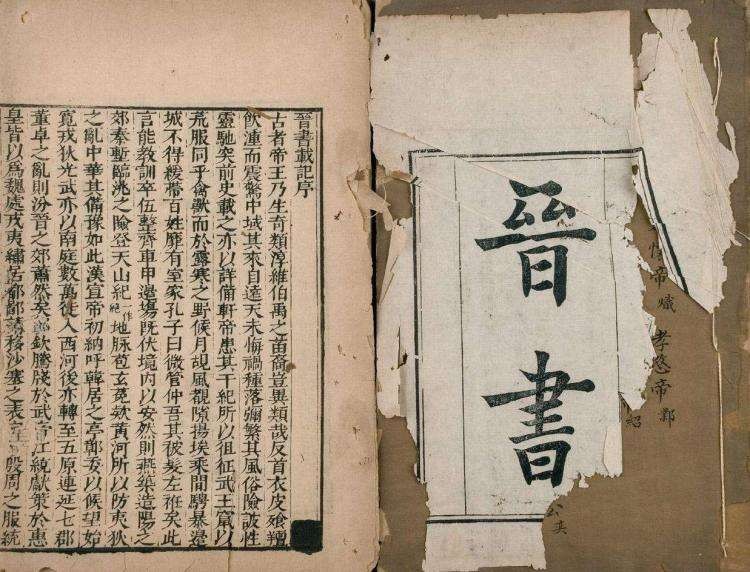 帝熾 孝愍帝鄴
紹
晉書
晉書載記序
古者帝王乃生奇類淳維伯禹之苗裔豈異類哉反首衣皮飡羶
飲湩而震驚中域其來自遠天未悔禍種落彌繁其風俗險詖性
靈馳突前史載之亦以詳備軒帝患其干紀所以徂征武王竄以
荒服同乎禽獸而於露寒之野候月覘風覩隙揚埃乘間騁暴邊
城不得緩帶百姓靡有室家孔子曰微管仲吾其被髮左袵矣此
言能敎訓卒伍整齊車甲邊場既伏境内以安然則燕築造陽之
郊秦塹臨洮之險登天山紀一作絕地脉苞玄菟款黃河所以防夷狄
之亂中華其備豫如此漢宣帝初納呼韓居之亭鄣委以候望始
寬戎狄光武亦以南庭數萬徙入西河後亦轉至五原連延七郡
董卓之亂則汾晉之郊蕭然矣郭欽騰牋於武帝江統獻策於惠
皇皆以爲魏處戎夷繡居都鄙請移沙塞之表定一殷周之服統